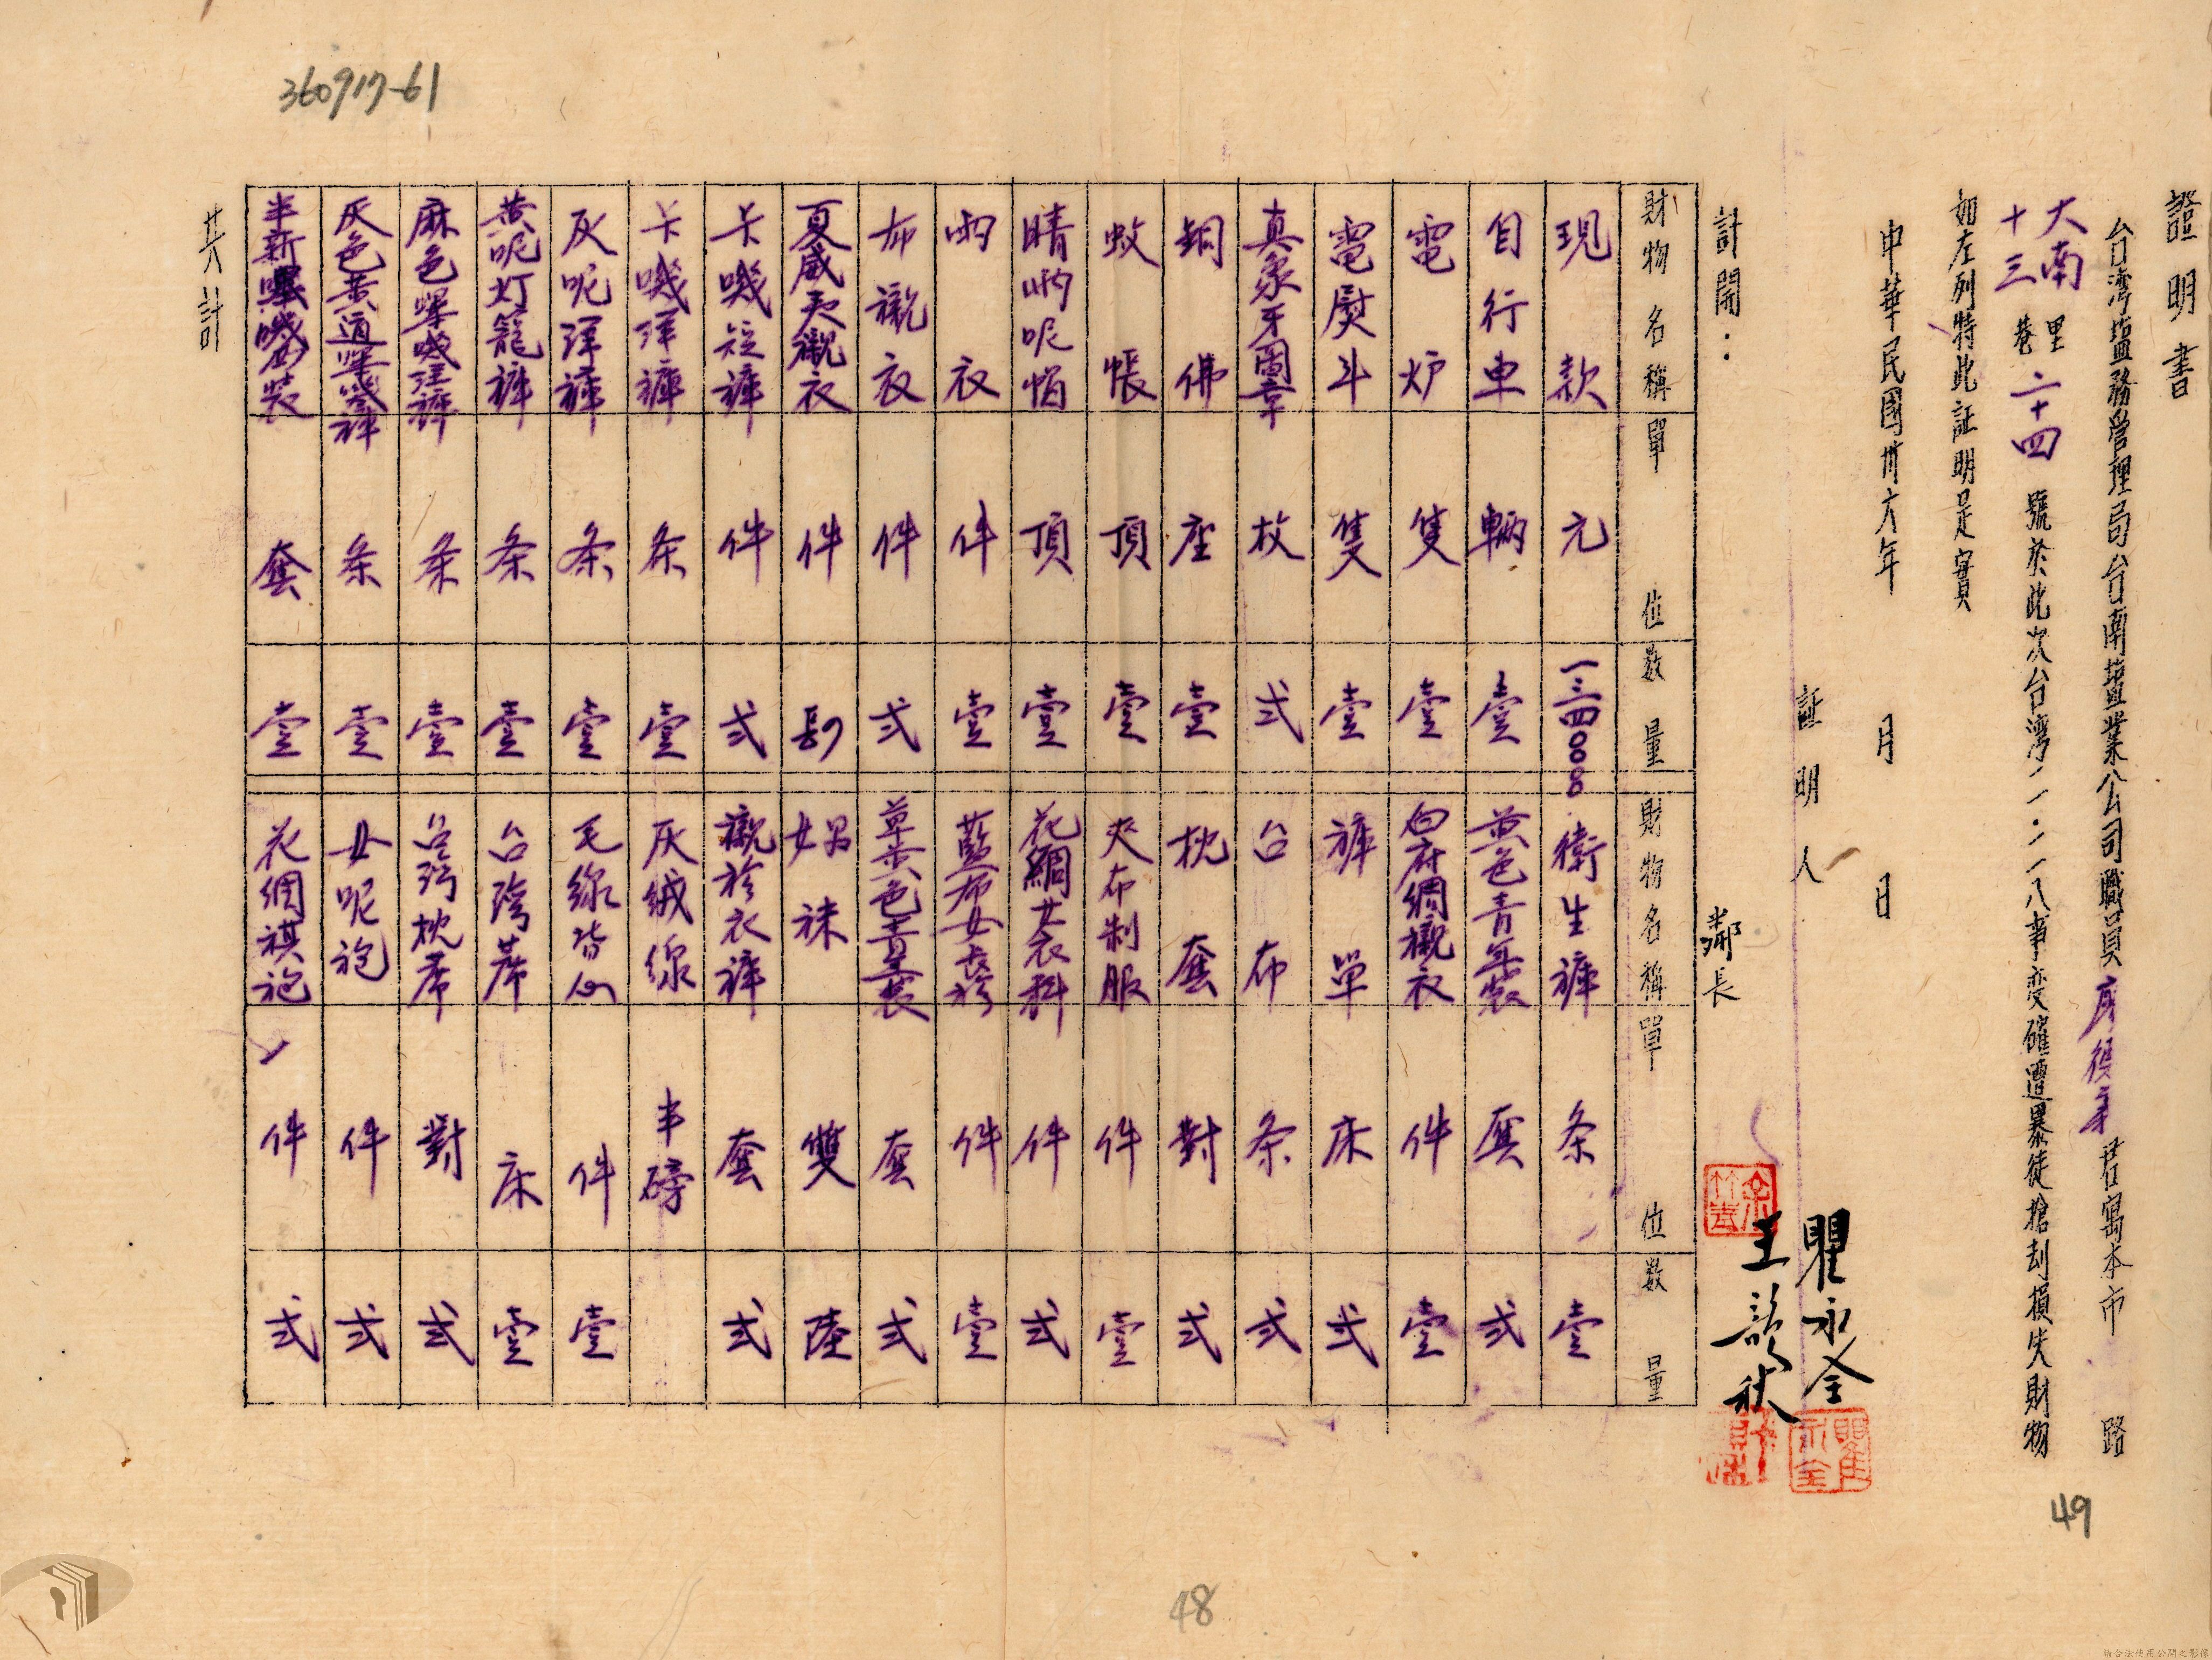 360917-61
證明書
台灣塩務管理局台南塩業公司職員 居寓本市 路
大南里十三巷二十四號於此次台灣二・二八事变確遭暴徒搶刦損失財物
如左列特此証明是實
中華民國卅六年 月 日
証明人 瞿永全
鄰長 王 秋
計開：
財物名稱 單位 数量 財物名稱 單位 数量
現款 元 一三四〇〇 衛生褲 条 壹
自行車 輌 壹 黄色青年裝 弍
電炉 隻 壹 白府綢襯衣 件 壹
電熨斗 隻 壹 褲單 床 弍
真象牙圖章 枚 弍 台布 条 弍
銅佛 座 壹 枕套 對 弍
蚊帳 頂 壹 夾布制服 件 壹
晴雨呢帽 頂 壹 花綢女衣料 件 弍
雨衣 件 壹 藍布女長袍 件 壹
布襯衣 件 弍 草黄色 套 弍
夏威夷襯衣 件 襪 雙 陸
卡嘰短褲 件 弍 襯衫衣褲 套 弍
卡嘰洋褲 条 壹 灰絨線 半磅
灰呢洋褲 条 壹 毛線背心 件 壹
黄呢灯籠褲 条 壹 台灣蓆 床 壹
麻色嗶嘰洋褲 条 壹 台灣枕蓆 對 弍
灰色黄道嗶嘰褲 条 壹 女呢袍 件 弍
半新嗶嘰西裝 套 壹 花綢祺袍 件 弍
共計
49
48
請合法使用公開之影像